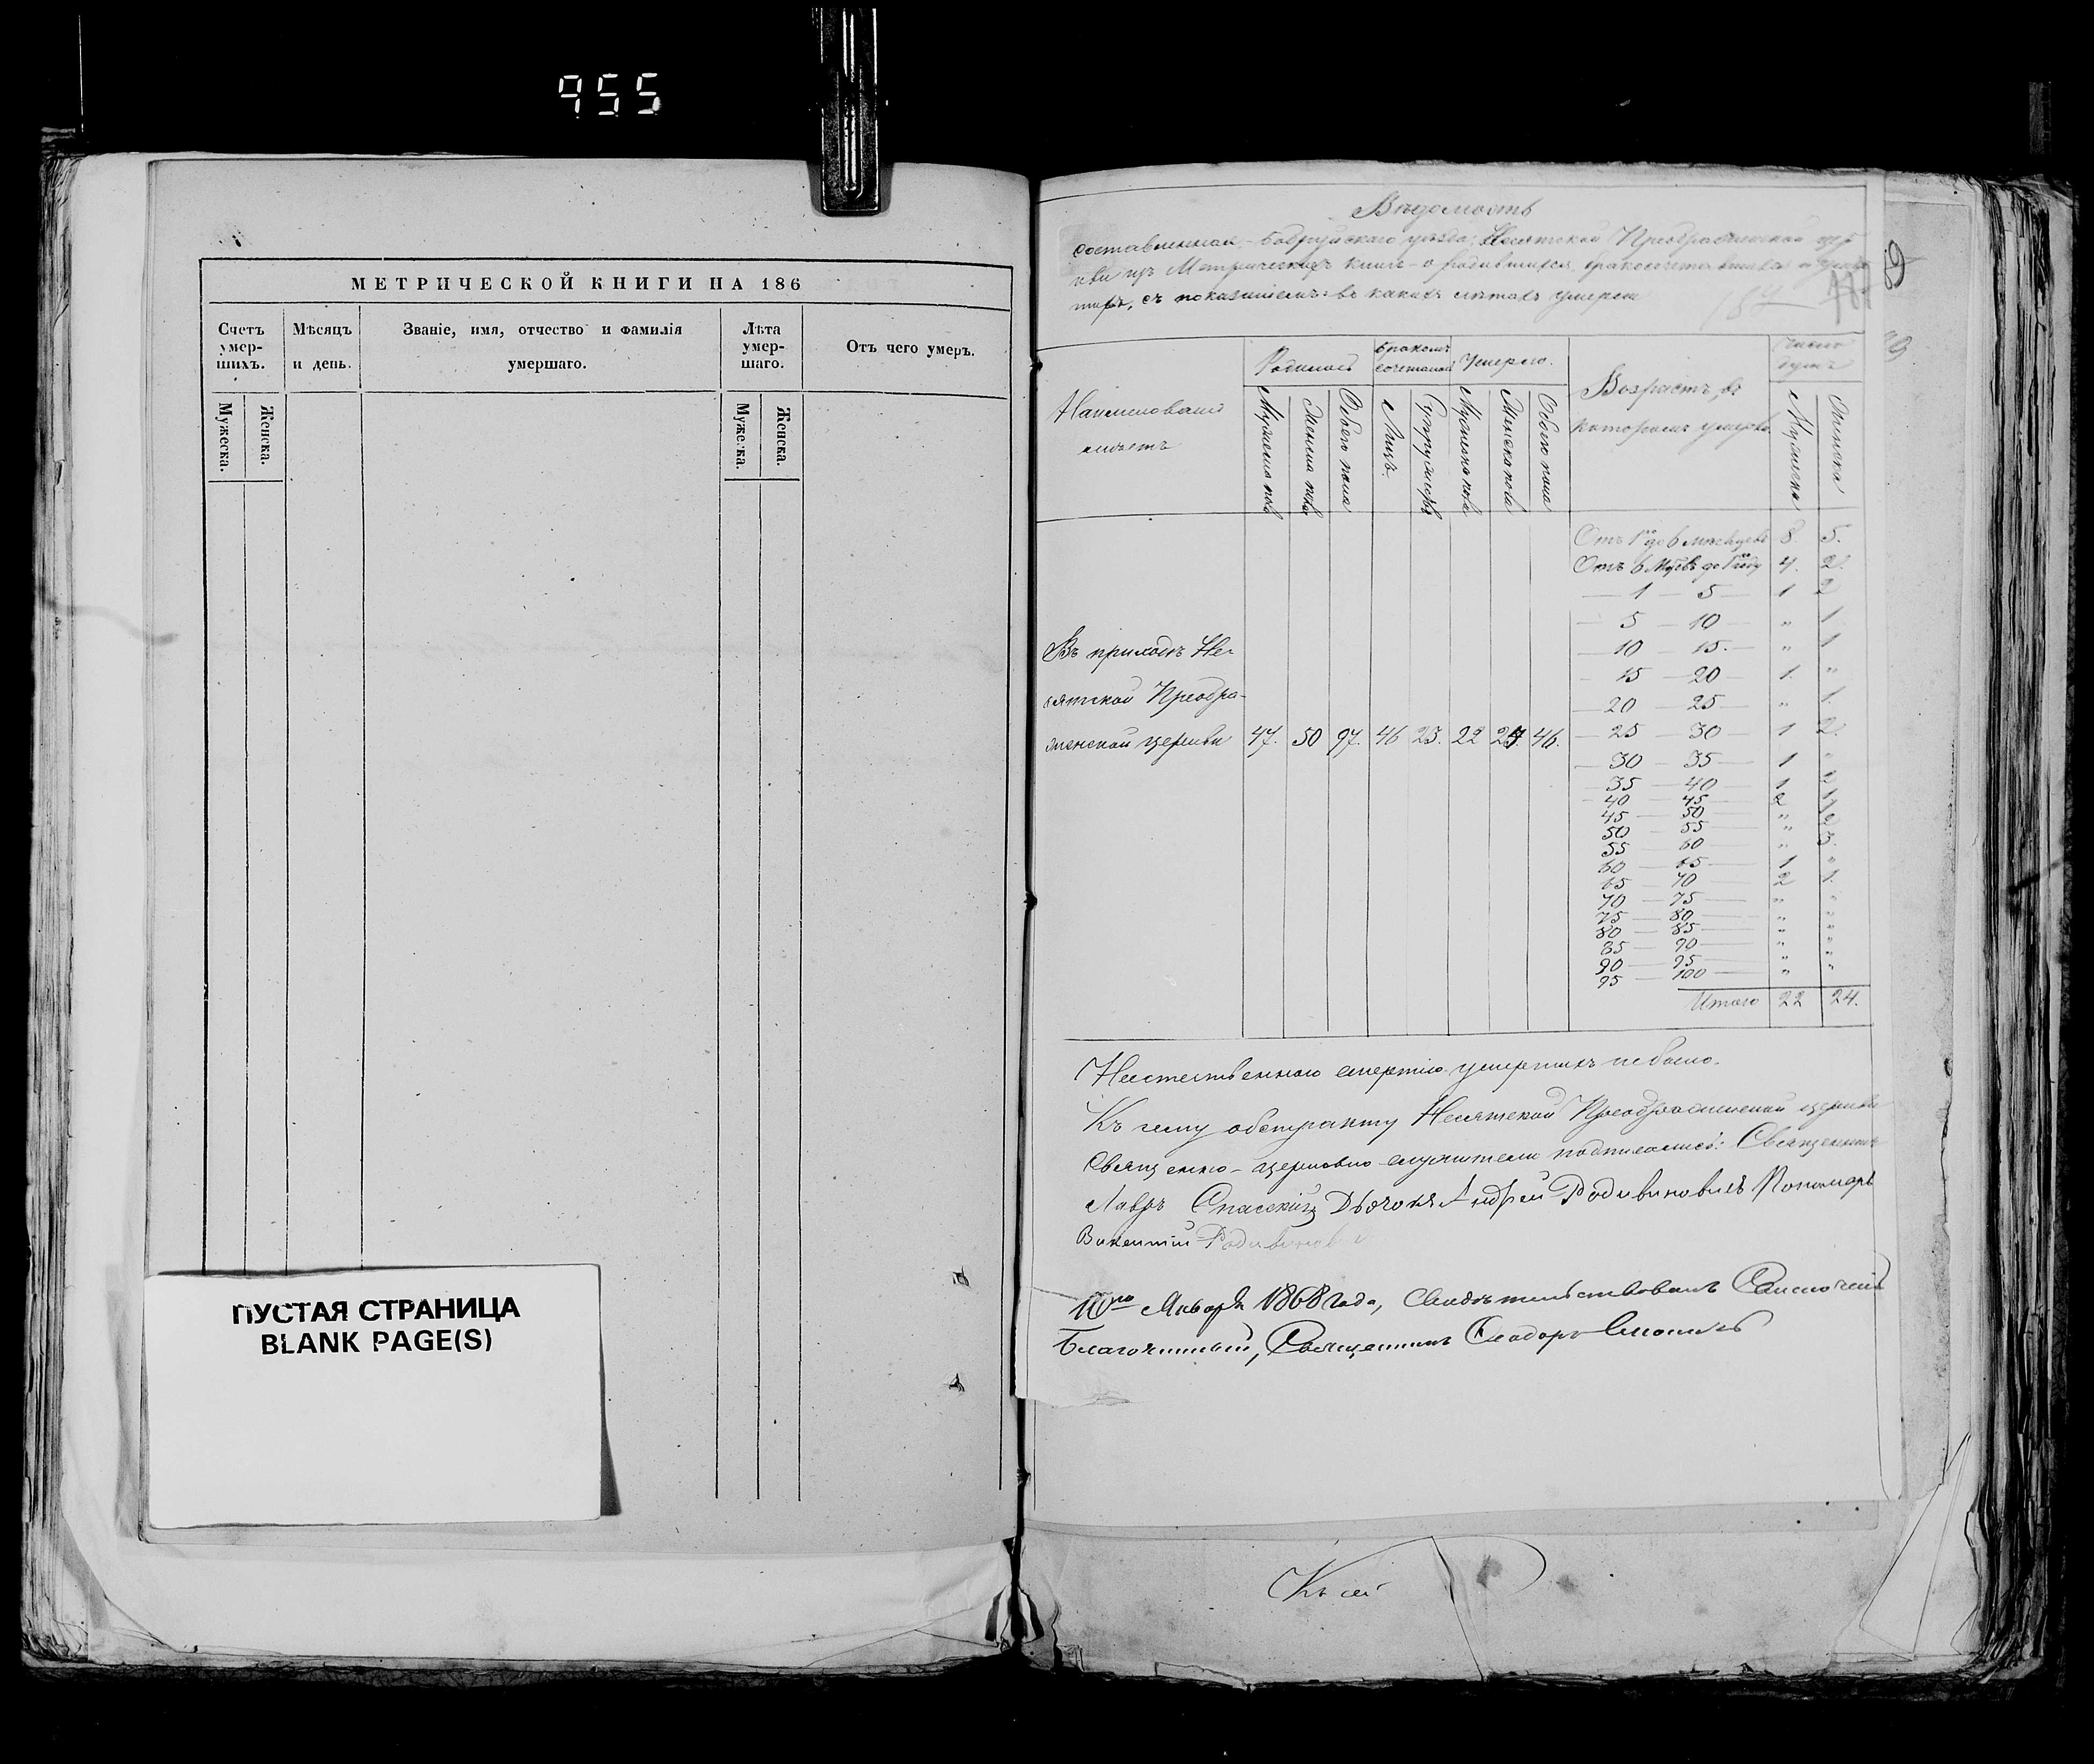 955
МЕТРИЧЕСКОЙ КНИГИ НА 186
Счетъ умер-шихъ.
Мѣсяцъ и день.
Званіе, имя, отчество и фамилія умершаго.
Лѣта умер-шаго.
Отъ чего умеръ.
Мужеска.
Женска.
Мужеска.
Женска.
ПУСТАЯ СТРАНИЦА
BLANK PAGE(S)
Вѣдомость
составленная - Бобруйскаго уѣзда, Несятской Преображенской цер
кви изъ Метрическихъ книгъ - о родившихся, бракосочетавшихся и умер
шихъ, съ показаніемъ: въ какихъ лѣтахъ умерли
Наименованіе
мѣстъ
Родилось
Бракомъ
сочеталось
Умерло.
Возрастъ, въ
которомъ умерло.
Число
душъ
Мужеска пола
Женска пола
Обоего пола
Лицъ.
Супружествъ
Мужеска пола
Женска пола
Обоего пола
Мужеска
Женска
Отъ 1го до 6 мѣсяцевъ 8. 5.
Отъ 6 до 1 году 4. 2.
1 — 5 — 1 2
5 — 10 — " 1
10 — 15. — " 1
15 — 20 — 1. "
20 — 25 — " 1.
25 — 30 1 2.
30 — 35 — 1 "
35 — 40 — 1
40 — 45 — 2
45 — 50 "
50 — 55 "
55 — 60 " 3.
60 — 65 — 1 "
65 — 70 — 2 1.
70 — 75 — " "
75 — 80 — " "
80 — 85 — " "
85 — 90 — " "
90 — 95 — " "
95 — 100 — " "
Итого 22 24.
Въ приходѣ Не-
сятской Преобра-
женской церкви 47. 50 97. 46 23. 22 24 46.
Неестественною смертію умершихъ не было.
Къ сему обстракту Несятской Преображенской церкви
Священно-церковно-служители подписались: Священникъ
Лавръ Спасскій Дьячокъ Андрей Родзивиновичъ Пономарь
Викентій
10го Января 1868 года, Свидѣтельствовалъ
Благочинный, Священникъ Ѳеодоръ
Къ сей